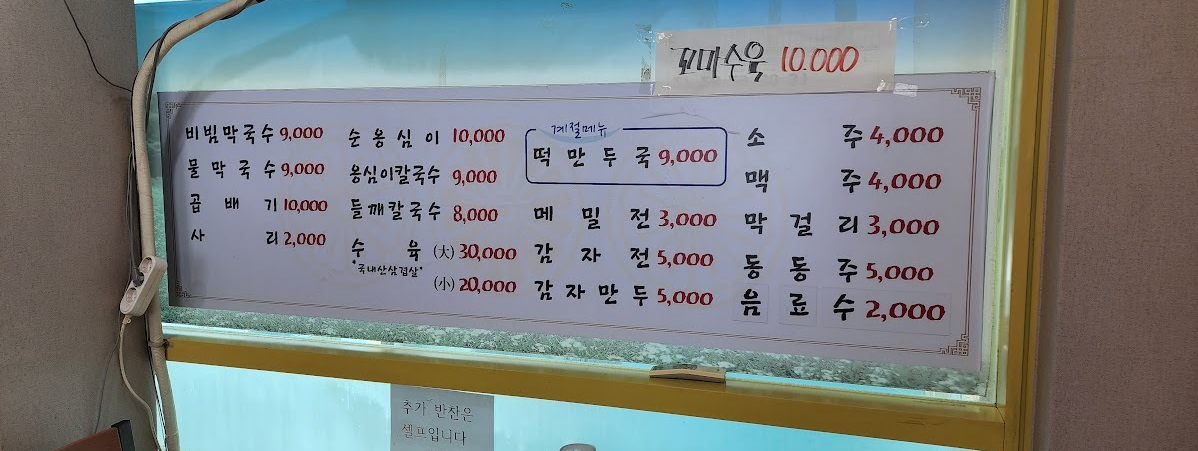 꼬마수육 10.000
비빔막국수 9,000
물막국수 9,000
곱배기 10,000
사리 2,000
순옹심이 10,000
옹심이칼국수 9,000
들깨칼국수 8,000
수육 (大) 30,000
*국내산삼겹살*
(小) 20,000
계절메뉴
떡만두국 9,000
메밀전 3,000
감자전 5,000
감자만두 5,000
소주 4,000
맥주 4,000
막걸리 3,000
동동주 5,000
음료수 2,000
추가 반찬은
셀프입니다